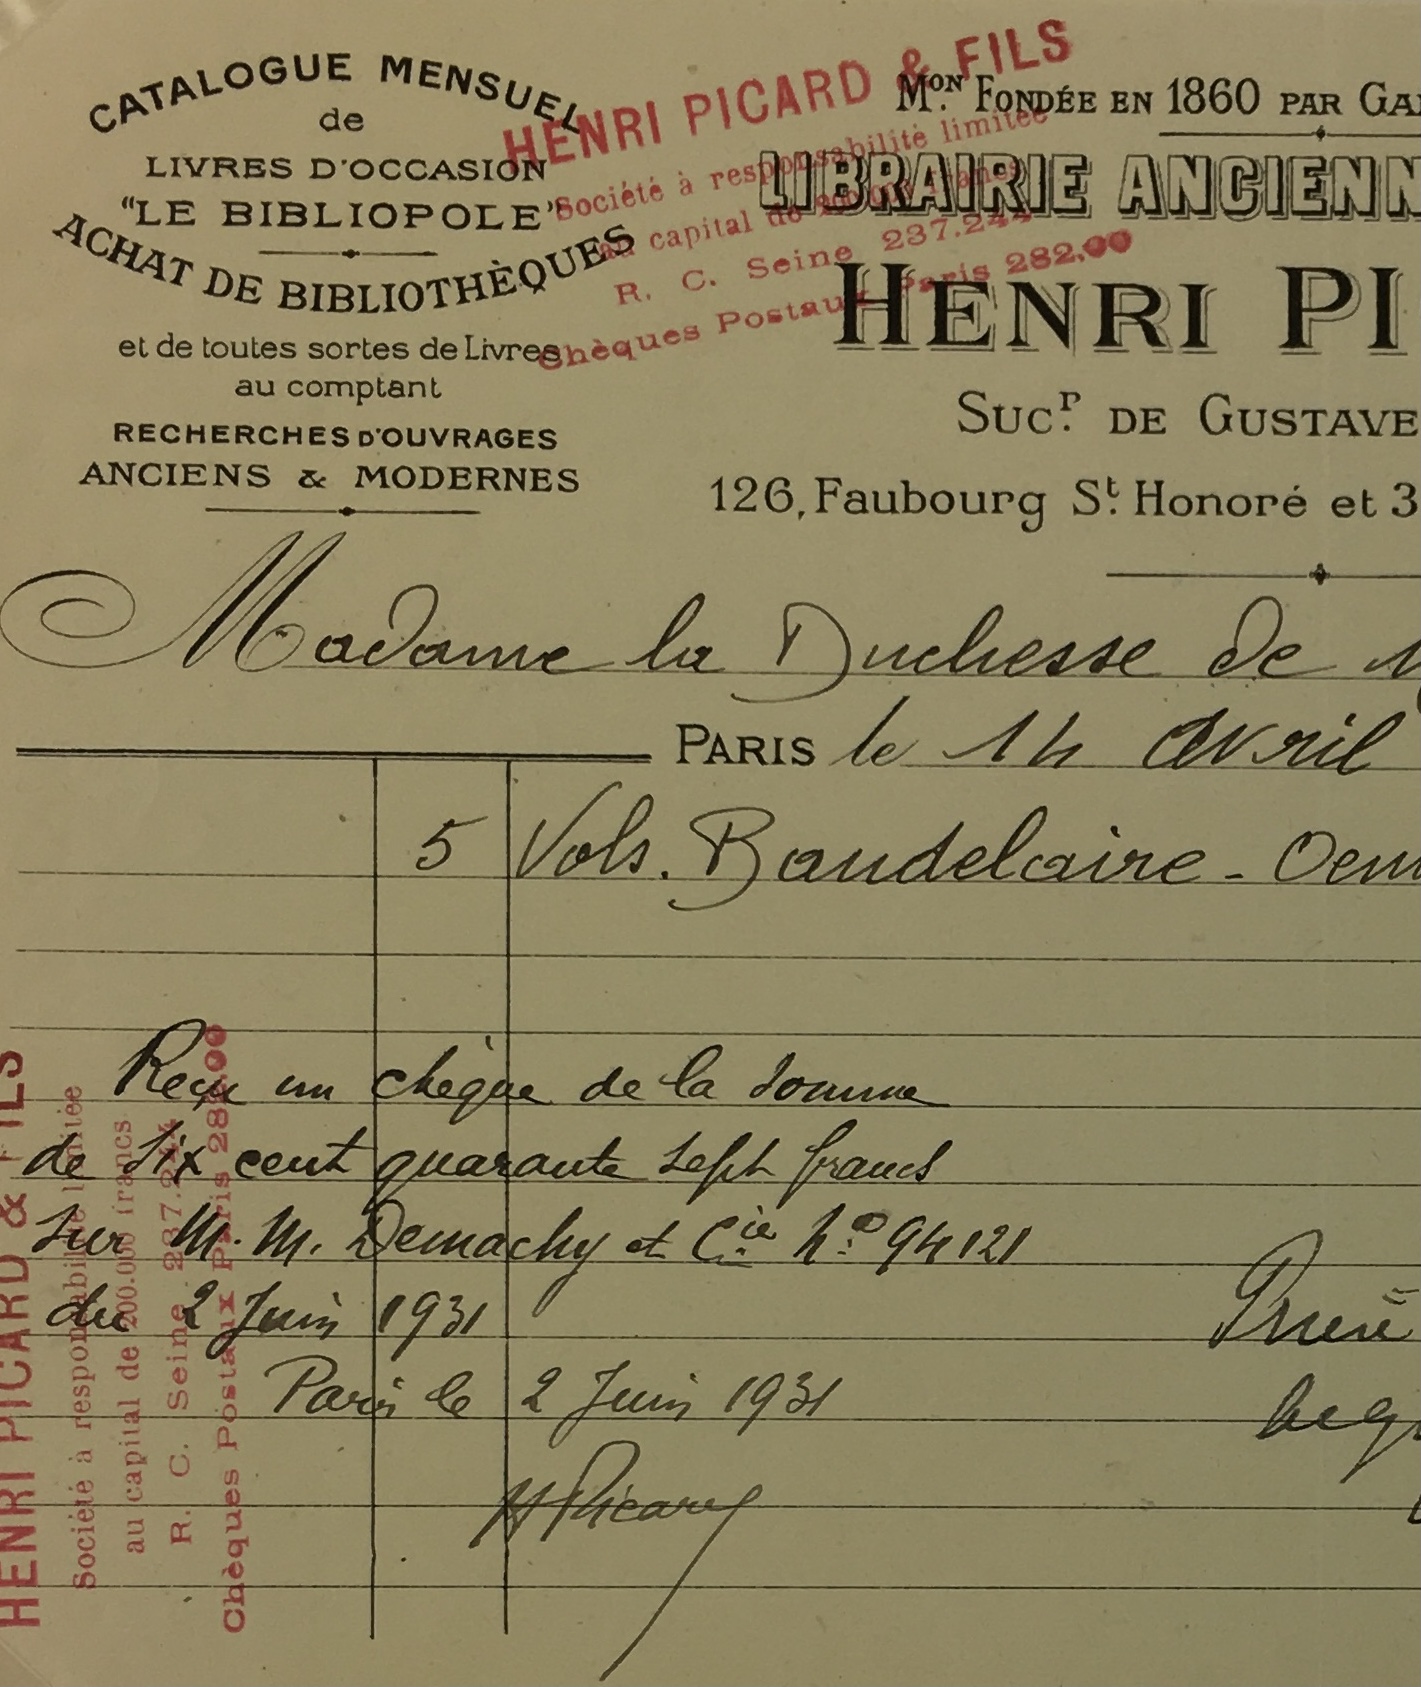 CATALOGUE MENSUEL
de
LIVRES D'OCCASION
"LE BIBLIOPOLE"
ACHAT DE BIBLIOTHÈQUES
et de toutes sortes de Livres
au comptant
RECHERCHES D'OUVRAGES
ANCIENS & MODERNES
HENRI PICARD & FILS
Société à responsabilité limitée
au capital de 200.000 francs
R. C. Seine 237.244
Chèques Postaux Paris 282.00
Mon. FONDÉE EN 1860 PAR GA
LIBRAIRIE ANCIENN
HENRI PI
SUCr. DE GUSTAVE
126, Faubourg St. Honoré et 3
Madame la Duchesse de
PARIS le 14 Avril
5 Vols. Baudelaire - Oeu
Reçu un chèque de la somme
de six cent quarante sept francs
sur M. M. Demachy et Cie No. 94121
du 2 Juin 1931
Paris le 2 Juin 1931
H Picard
HENRI PICARD & FILS
Société à responsabilité limitée
au capital de 200.000 francs
R. C. Seine 237.244
Chèques Postaux Paris 282.00